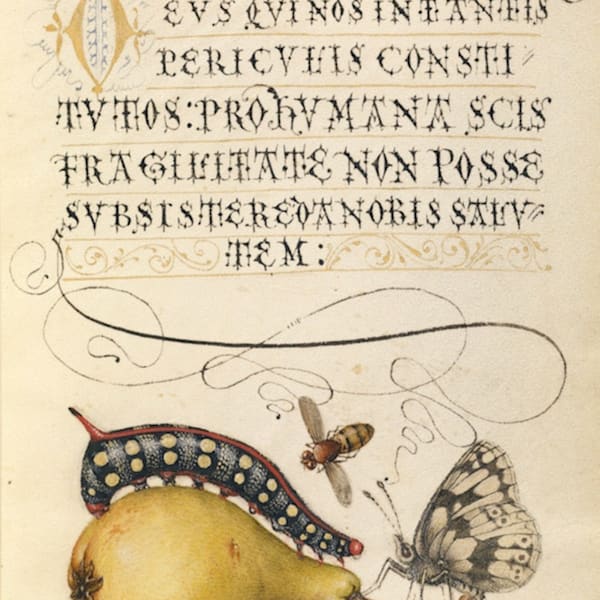 DEVS QVI NOS IN TANTIS
PERICVLIS CONSTI=
TVTOS: PRO HVMANA SCIS
FRAGILITATE NON POSSE
SVBSISTERE DA NOBIS SALV=
TEM: